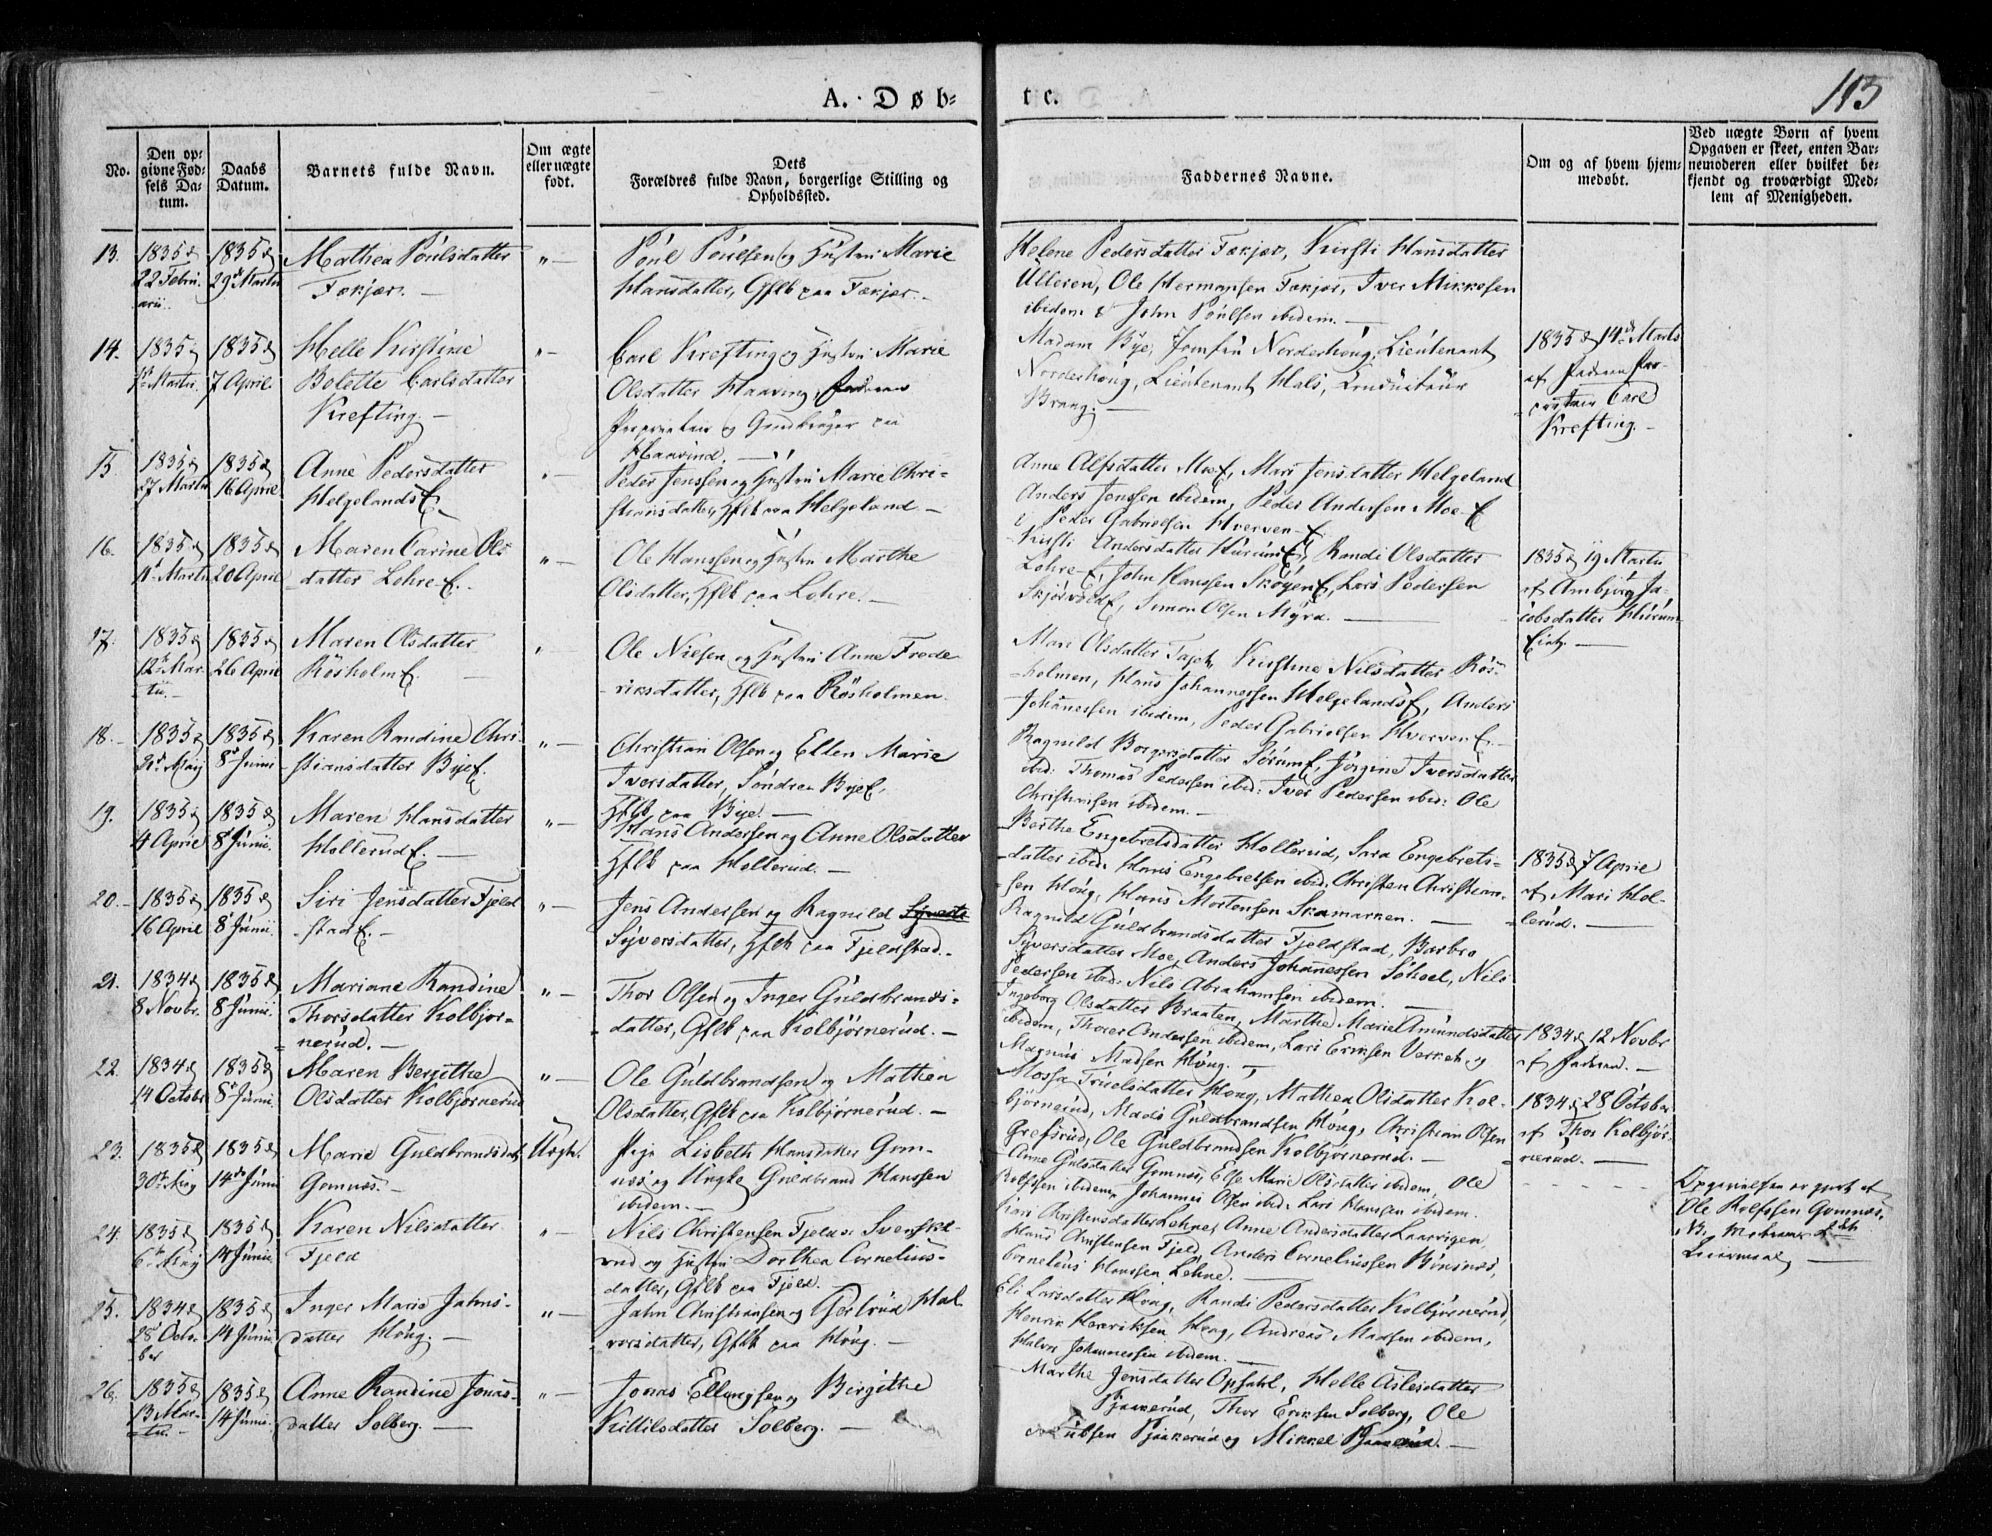 A. Døb=
te.
113
No.
Den op=
givne Fød=
sels Da=
tum.
Daabs
Datum.
Barnets fulde Navn.
Om ægte
eller uægte
født.
Dets
Forældres fulde Navn, borgerlige Stilling og
Opholdssted.
Faddernes Navne.
Om og af hvem hjem=
medøbt.
Ved uægte Børn af hvem
Opgaven er skeet, enten Bar=
nemoderen eller hvilket be=
kjendt og troværdigt Med=
lem af Menigheden.
13.
1835
22 Febru
arii
1835
29 Martii
Mathea Poulsdatter
Fækjær.
Poul Poulsen og Hustru Marie
Hansdatter, Gflk paa Fækjær.
Helene Pedersdatter Fækjær, Kirsti Hansdatter
Ulleren, Ole Hermansen Fækjær, Iver Mikkelsen
ibidem & John Poulsen ibidem.
14.
1835
Martii
1835
7 April
Helle Kirstine
Bolette Carlsdatter
Krefting.
Carl Krefting og Hustru Marie
Olsdatter Haavind,
og paa
Haavind.
Madam Bye, Jomfru Norderhoug, Lieutenant
Norderhoug, Lieutenant Hals, Conducteur
Brang.
1835 14de Marts
af Faderen Pro-
Carl
Krefting.
15
1835
27 Martii
1835
16 April
Anne Pedersdatter
Helgelands E.
Peder Jenssen og Hustru Marie Chri-
stiansdatter, Gflk paa Helgeland
Anne Alfsdatter Moe E, Mari Jensdatter Helgeland
Anders Jenssen ibidem, Peder Andersen Moe E
& Peder Gabrielsen Hverven E.
16.
1835
11 Martii
1835
20 April
Maren Carine Ols
datter Lohre E.
Ole Hanssen og Hustru Marthe
Olsdatter, Gflk paa Lohre.
Kirsti Andersdatter Hurum E, Randi Olsdatter
Lohre E, John Hanssen Skøyen E, Lars Pedersen
Skjørvold E, Simon Olsen Myra.
1835 19 Martii
af Ambjør Ja-
cobsdatter Hurum
Eie.
17.
1835
12te Mar-
tii.
1835
26 April
Maren Olsdatter
Røsholm E.
Ole Nielsen og Hustru Anne Frede
riksdatter, Gflk paa Røsholmen.
Mari Olsdatter Kirstine Nilsdatter Røs-
holmen, Hans Johannessen Helgelands E, Anders
Johanessen ibidem, Peder Gabrielsen Hverven E.
18.
1835
Maij
1835
8 Junii
Karen Randine Chri
stiansdatter Bye E.
Christian Olsen og Ellen Marie
Iversdatter, Søndre Bye E,
Gflk paa Bye.
Ragnild Borgersdatter Sørum E, Jørgine Iversdatter
ibid: Thomas Pedersen ibid: Iver Pedersen ibid: Ole
Christiansen ibidem.
19.
1835
4 April
1835
8 Junii.
Maren Hansdatter
Hollerud E.
Hans Andersen og Anne Olsdatter
Gflk paa Hollerud.
Berthe Engebretsdatter Hollerud, Sara Engebrets-
datter ibid: Hans Engebretsen ibid: Christen Christian-
sen Houg, Hans Mortensen Skamarken.
1835 7 April
af Mari Hol-
lerud.
20.
1835
16 April
1835
8 Junii.
Siri Jensdatter Fjeld
stad E.
Jens Andersen og Ragnild
Syversdatter, Gflk paa Fjeldstad.
Ragnild Guldbrandsdatter Fjeldstad, Barbro
Syversdatter Moe, Anders Johanessen Søhoel, Nils
Pedersen ibid: Nils Abrahamsen ibidem.
21.
1834
8 Novbr.
1835
8 Junii.
Mariane Randine
Thorsdatter Kolbjor-
nerud.
Thor Olsen og Inger Guldbrands-
datter, Gflk paa Kolbjørnerud.
Ingeborg Olsdatter Braaten, Marthe Marie Amundsdatter
ibidem, Thorer Andersen ibidem, Lars Eriksen Verket og
Magnus Madsen Houg.
1834 12 Novbr
af Faderen.
22.
1834
14 Octobr
1835
8 Junii.
Maren Bergithe
Olsdatter Kolbjørnerud
Ole Guldbrandsen og Mathea
Olsdatter, Gflk paa Kolbjørnerud.
Truelsdatter Houg, Mathea Olsdatter Kol-
bjørnerud, Mads Guldbrandsen Houg, Christian Olsen
Grefsrud, Ole Guldbrandsen Kolbjørnerud.
1834 28 October
af Thor Kolbjør-
nerud.
23.
1835
30te Maj
1835
14de Junii
Marie Guldbrandsdat
Gomnæs.
Uægte.
Pige Lisbeth Hansdatter Gom-
næs og Ungke Guldbrand Hanssen
ibidem.
Anne Gulsdatter Gomnæs, Else Marie Olsdatter ibidem, Ole
Rolfsen ibidem, Johannes Olsen ibid: Lars Hanssen ibidem.
Opgivelsen er gjort af
Ole Rolfssen Gomnæs.
NB. Moderens 2det
Leiermaal
24.
1835
6te Maij
1835
14 Junii
Karen Nilsdatter
Fjeld
Nils Christensen Fjeld: Svensk-
rud og Hustru Dorthea Cornelius-
datter, Gflk paa Fjeld.
Christensdatter Lehne, Anne Andersdatter Laarvigen,
Hans Christensen Fjeld, Anders Corneliussen Bønsnæs,
Cornelius Hanssen Lehne.
25.
1834
28 Octo-
ber
1835
14 Junii
Inger Marie Jahns-
datter Houg.
Jahn Christiansen og Gertrud Hal
vorsdatter, Gflk paa Houg.
Eli Larsdatter Houg, Randi Pedersdatter Kolbjørnerud,
Henrik Henriksen Houg, Andreas Madsen ibidem,
Halvor Johannessen ibidem.
26.
1835
13 Mar-
tii.
1835
14 Junii.
Anne Randine Jonas-
datter Solberg.
Jonas Ellingsen og Birgithe
Kittilsdatter Solberg.
Marthe Jensdatter Opsahl, Helle Aslesdatter
Pjaakerud, Thor Eriksen Solberg, Ole
Pjaakerud og Mikkel Pjaakerud.